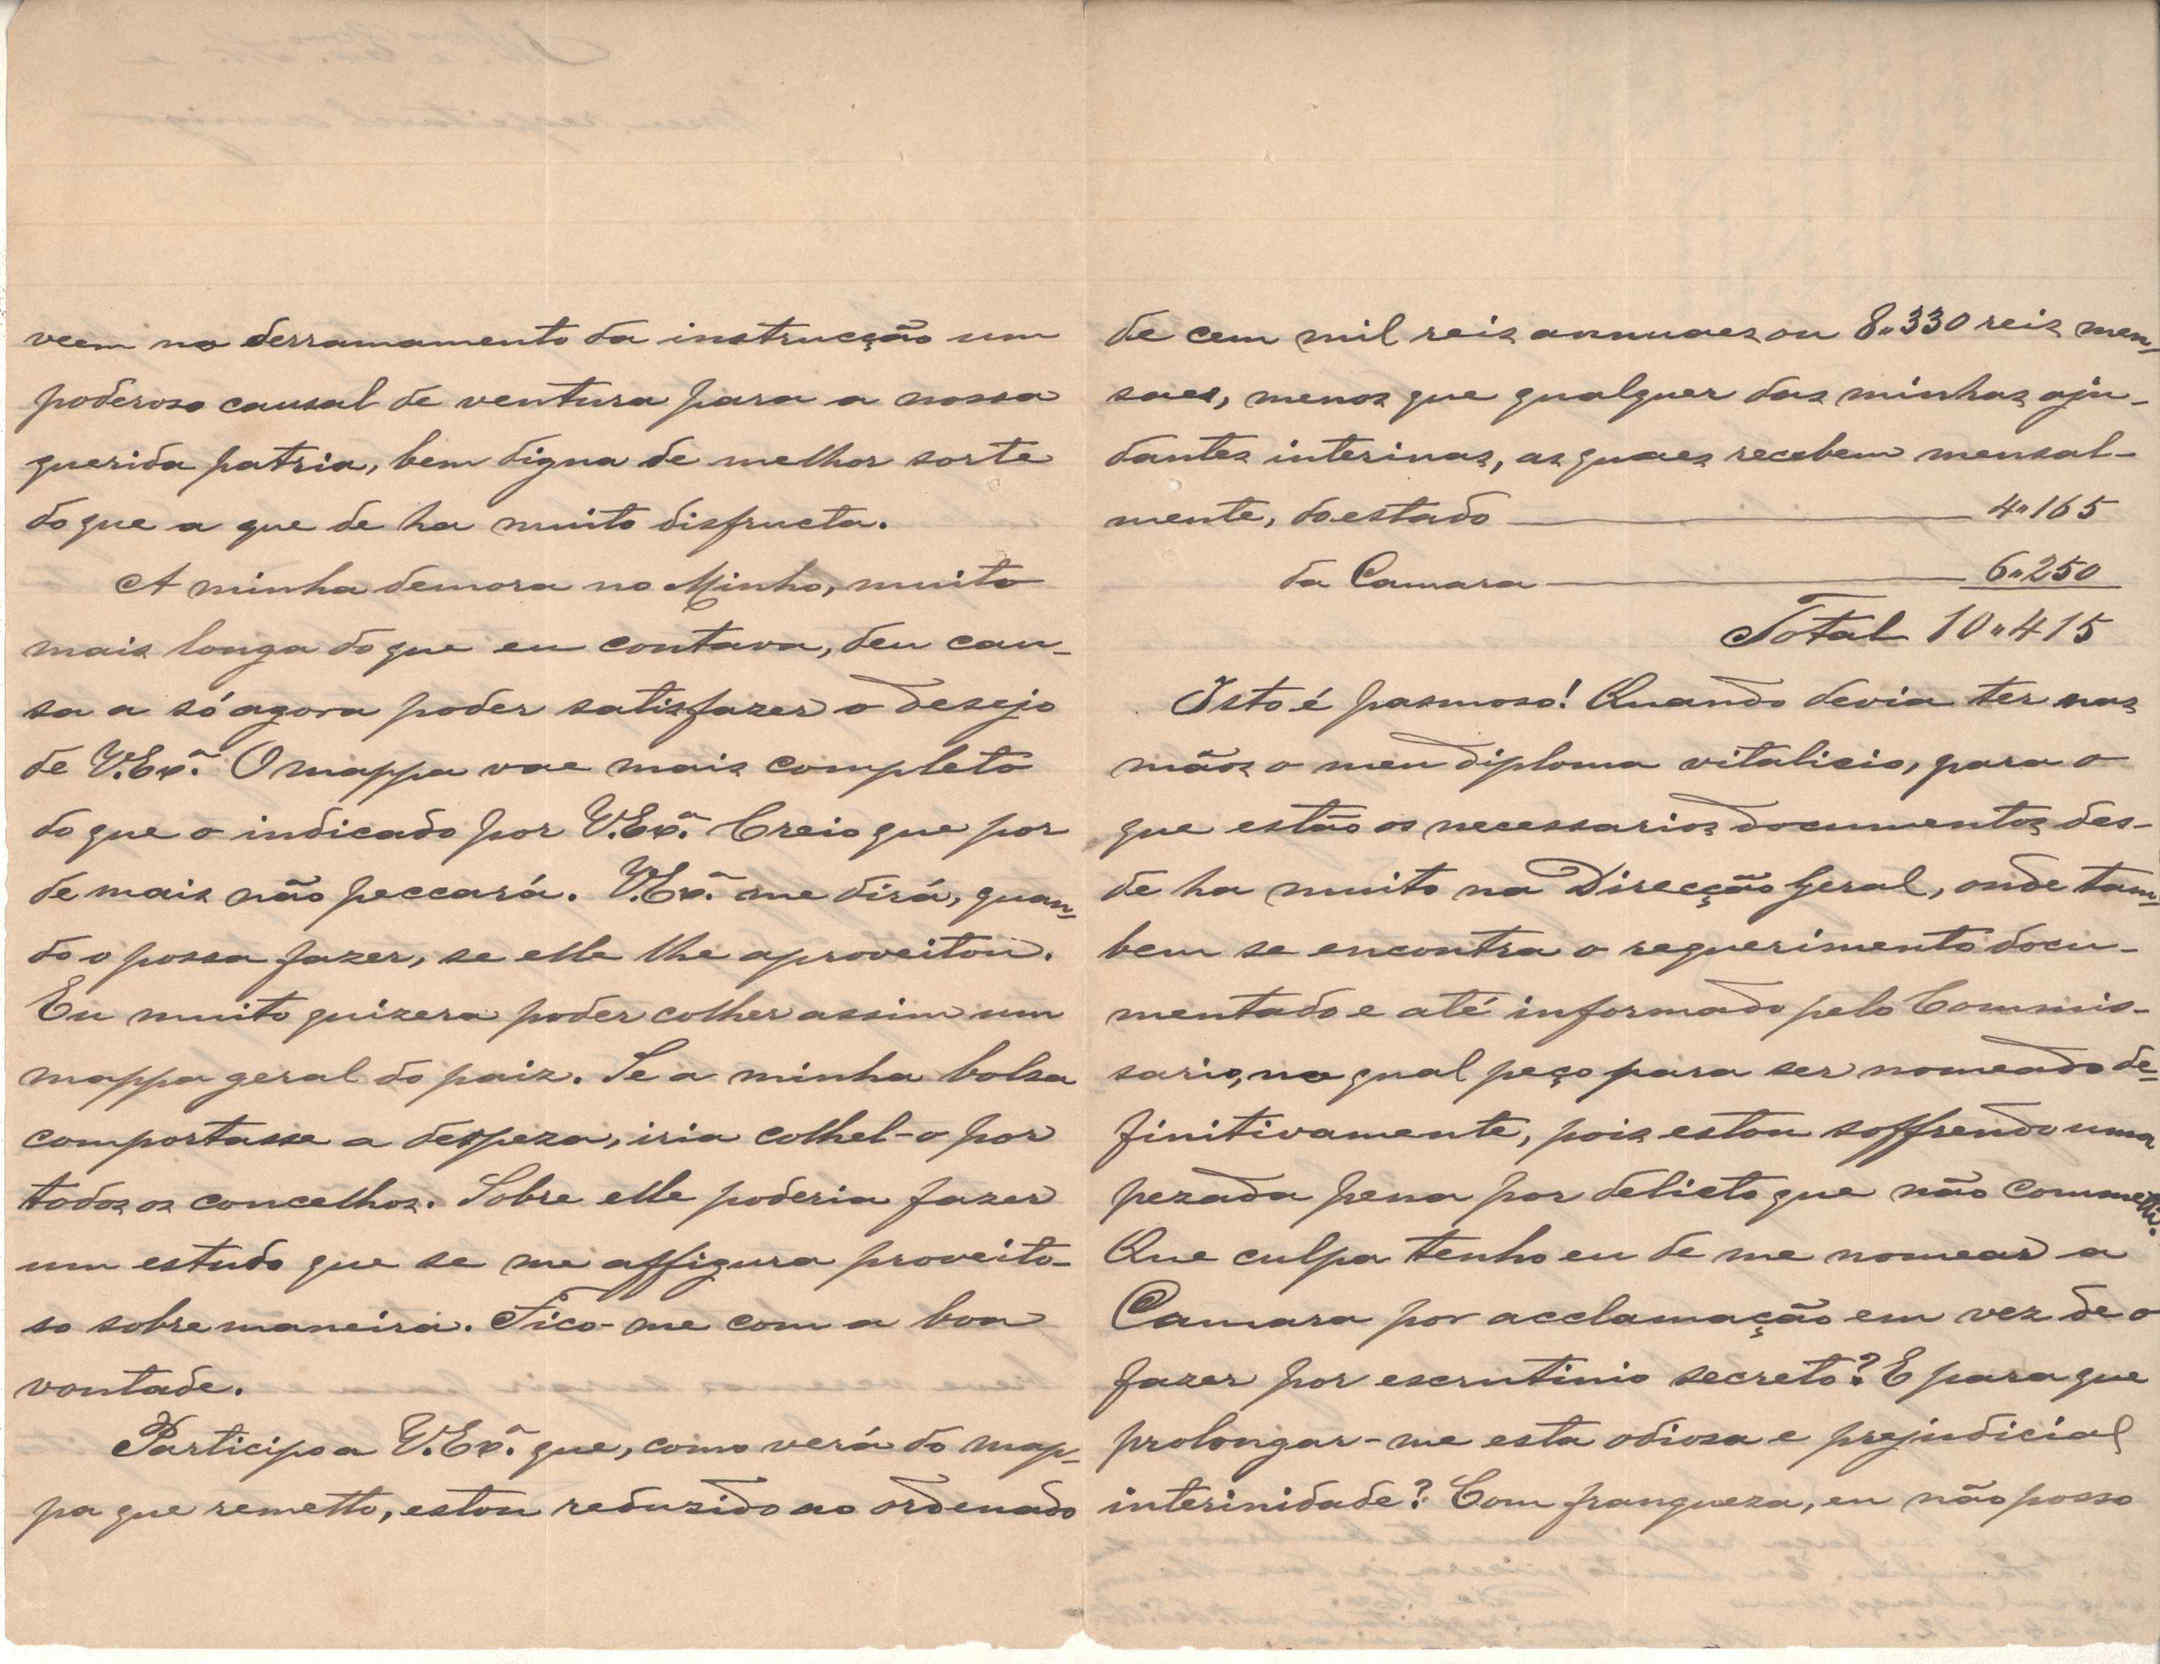 veem no derramamento da instrucção um
poderoso causal de ventura para a nossa
querida patria, bem digna de melhor sorte
do que a que de ha muito disfructa.
A minha demora no Minho, muito
mais longa do que eu contava, deu cau-
sa a só agora poder satisfazer o desejo
de V. Exª. O mappa vae mais completo
do que o indicado por V. Exª. Creio que por
de mais não peccará. V. Exª. me dirá, quan-
do o possa fazer, se elle lhe aproveitou.
Eu muito quizera poder colher assim um
mappa geral do paiz. Se a minha bolsa
comportasse a despeza, iria colhel-o por
todos os concelhos. Sobre elle poderia fazer
um estudo que se me affigura proveito-
so sobremaneira. Fico-me com a boa
vontade.
Participo a V. Exª. que, como verá do map-
pa que remetto, estou reduzido ao ordenado
de cem mil reis annuaes ou 8"330 reis men-
saes, menos que qualquer das minhas aju-
dantes interinas, as quaes recebem mensal-
mente, do estado — 4"165
da Camara — 6"250
Total 10"415
Isto é pasmoso! Quando devia ter nas
mãos o meu diploma vitalicio, para o
que estão os necessarios documentos des-
de ha muito na Direcção Geral, onde tam-
bem se encontra o requerimento docu-
mentado e até informado pelo Commis-
sario, no qual peço para ser nomeado de-
finitivamente, pois estou soffrendo uma
pezada pena por delicto que não commetti.
Que culpa tenho eu de me nomear a
Camara por acclamação em vez de o
fazer por escrutinio secreto? E para que
prolongar-me esta odiosa e prejudicial
interinidade? Com franqueza, eu não posso